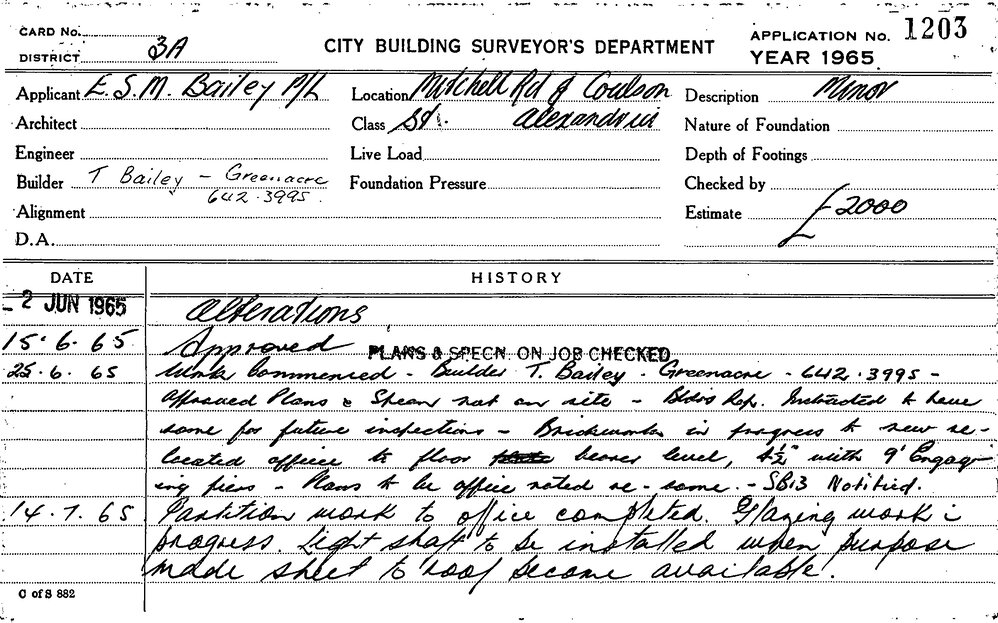 CARD No.
DISTRICT 3A
CITY BUILDING SURVEYOR'S DEPARTMENT
APPLICATION No. 1203
YEAR 1965
Applicant E.S.M. Bailey P/L
Location Mitchell Rd & Coulson
Description Minor
Architect
Class St. Alexandria
Nature of Foundation
Engineer
Live Load
Depth of Footings
Builder T Bailey - Greenacre
642.3995.
Foundation Pressure
Checked by
Alignment
Estimate £2000
D.A.
DATE
HISTORY
- 2 JUN 1965 Alterations
15.6.65 Approved PLANS & SPECN. ON JOB CHECKED
25.6.65 Work Commenced - Builder T. Bailey - Greenacre - 642.3995 -
approved Plans & Specn not on site - Bldrs Rep. Instructed to have
same for future inspections - Brickworks in progress to new re-
located office to floor bearer level, 4½" with 9" Engag-
ing piers - Plans to be office noted re-same. - SB13 Notified.
14.7.65 Partition work to office completed. Glazing work i
progress. Light shaft to be installed when purpose
made sheet to roof become available.
C of S 882